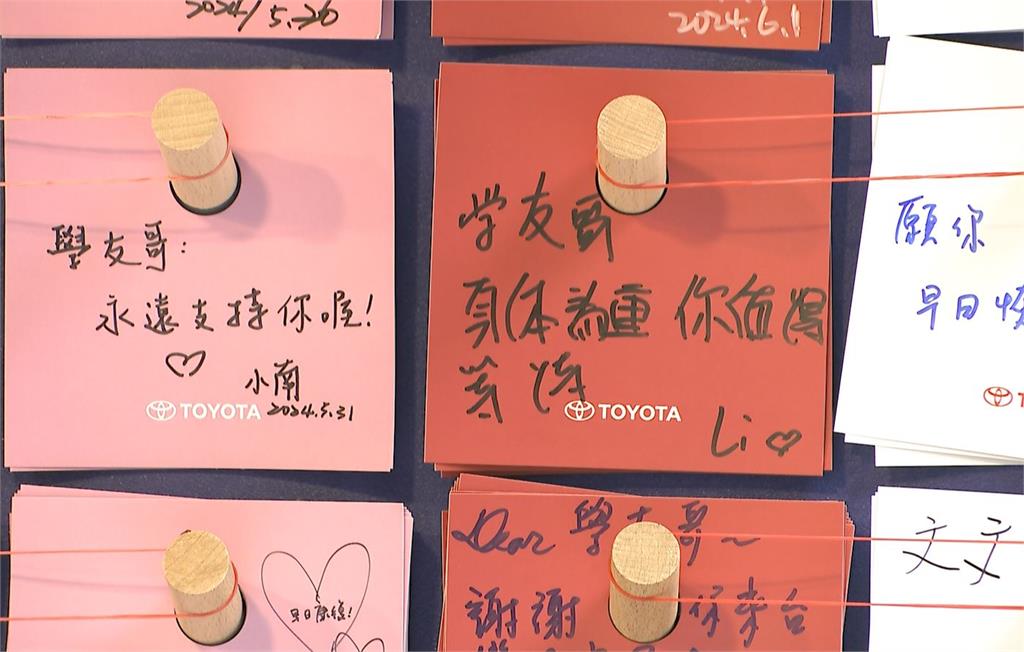 2024/5.26
2024.6.1
學友哥:
永遠支持你喔!
小南
TOYOTA 2024.5.31
学友哥
身体為重 你值得
等待
TOYOTA
Li
願你
早日
早日康復!
Dear 學友哥~
謝謝 你來台
文文